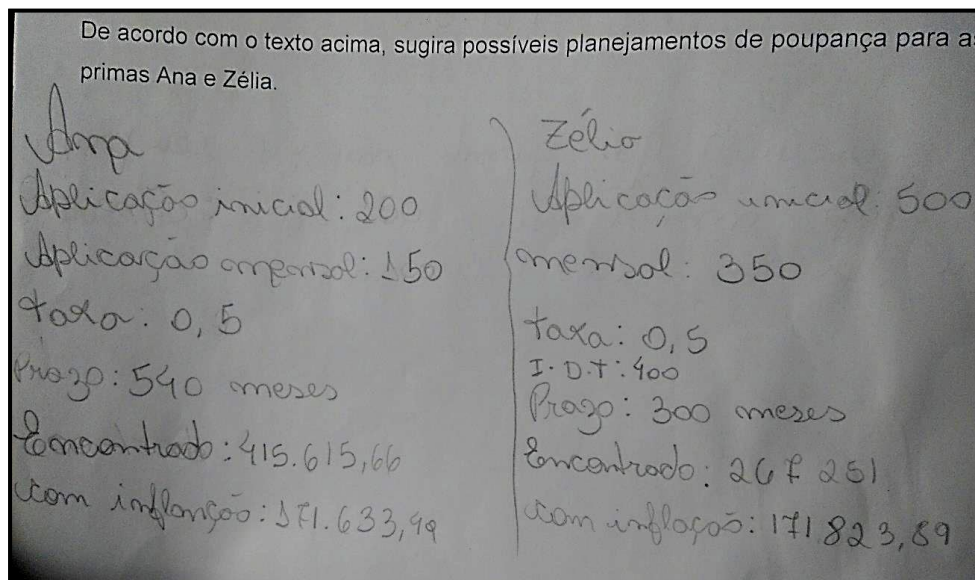 De acordo com o texto acima, sugira possíveis planejamentos de poupança para as
primas Ana e Zélia.
Ana
Aplicação inicial: 200
Aplicação mensal: 150
taxa: 0,5
Prazo: 540 meses
Encontrado: 415.615,66
com inflanção: 171.633,49
Zélia
Aplicação inicial: 500
mensal: 350
taxa: 0,5
I.D.T: 400
Prazo: 300 meses
Encontrado: 267 251
com inflação: 171 823,89